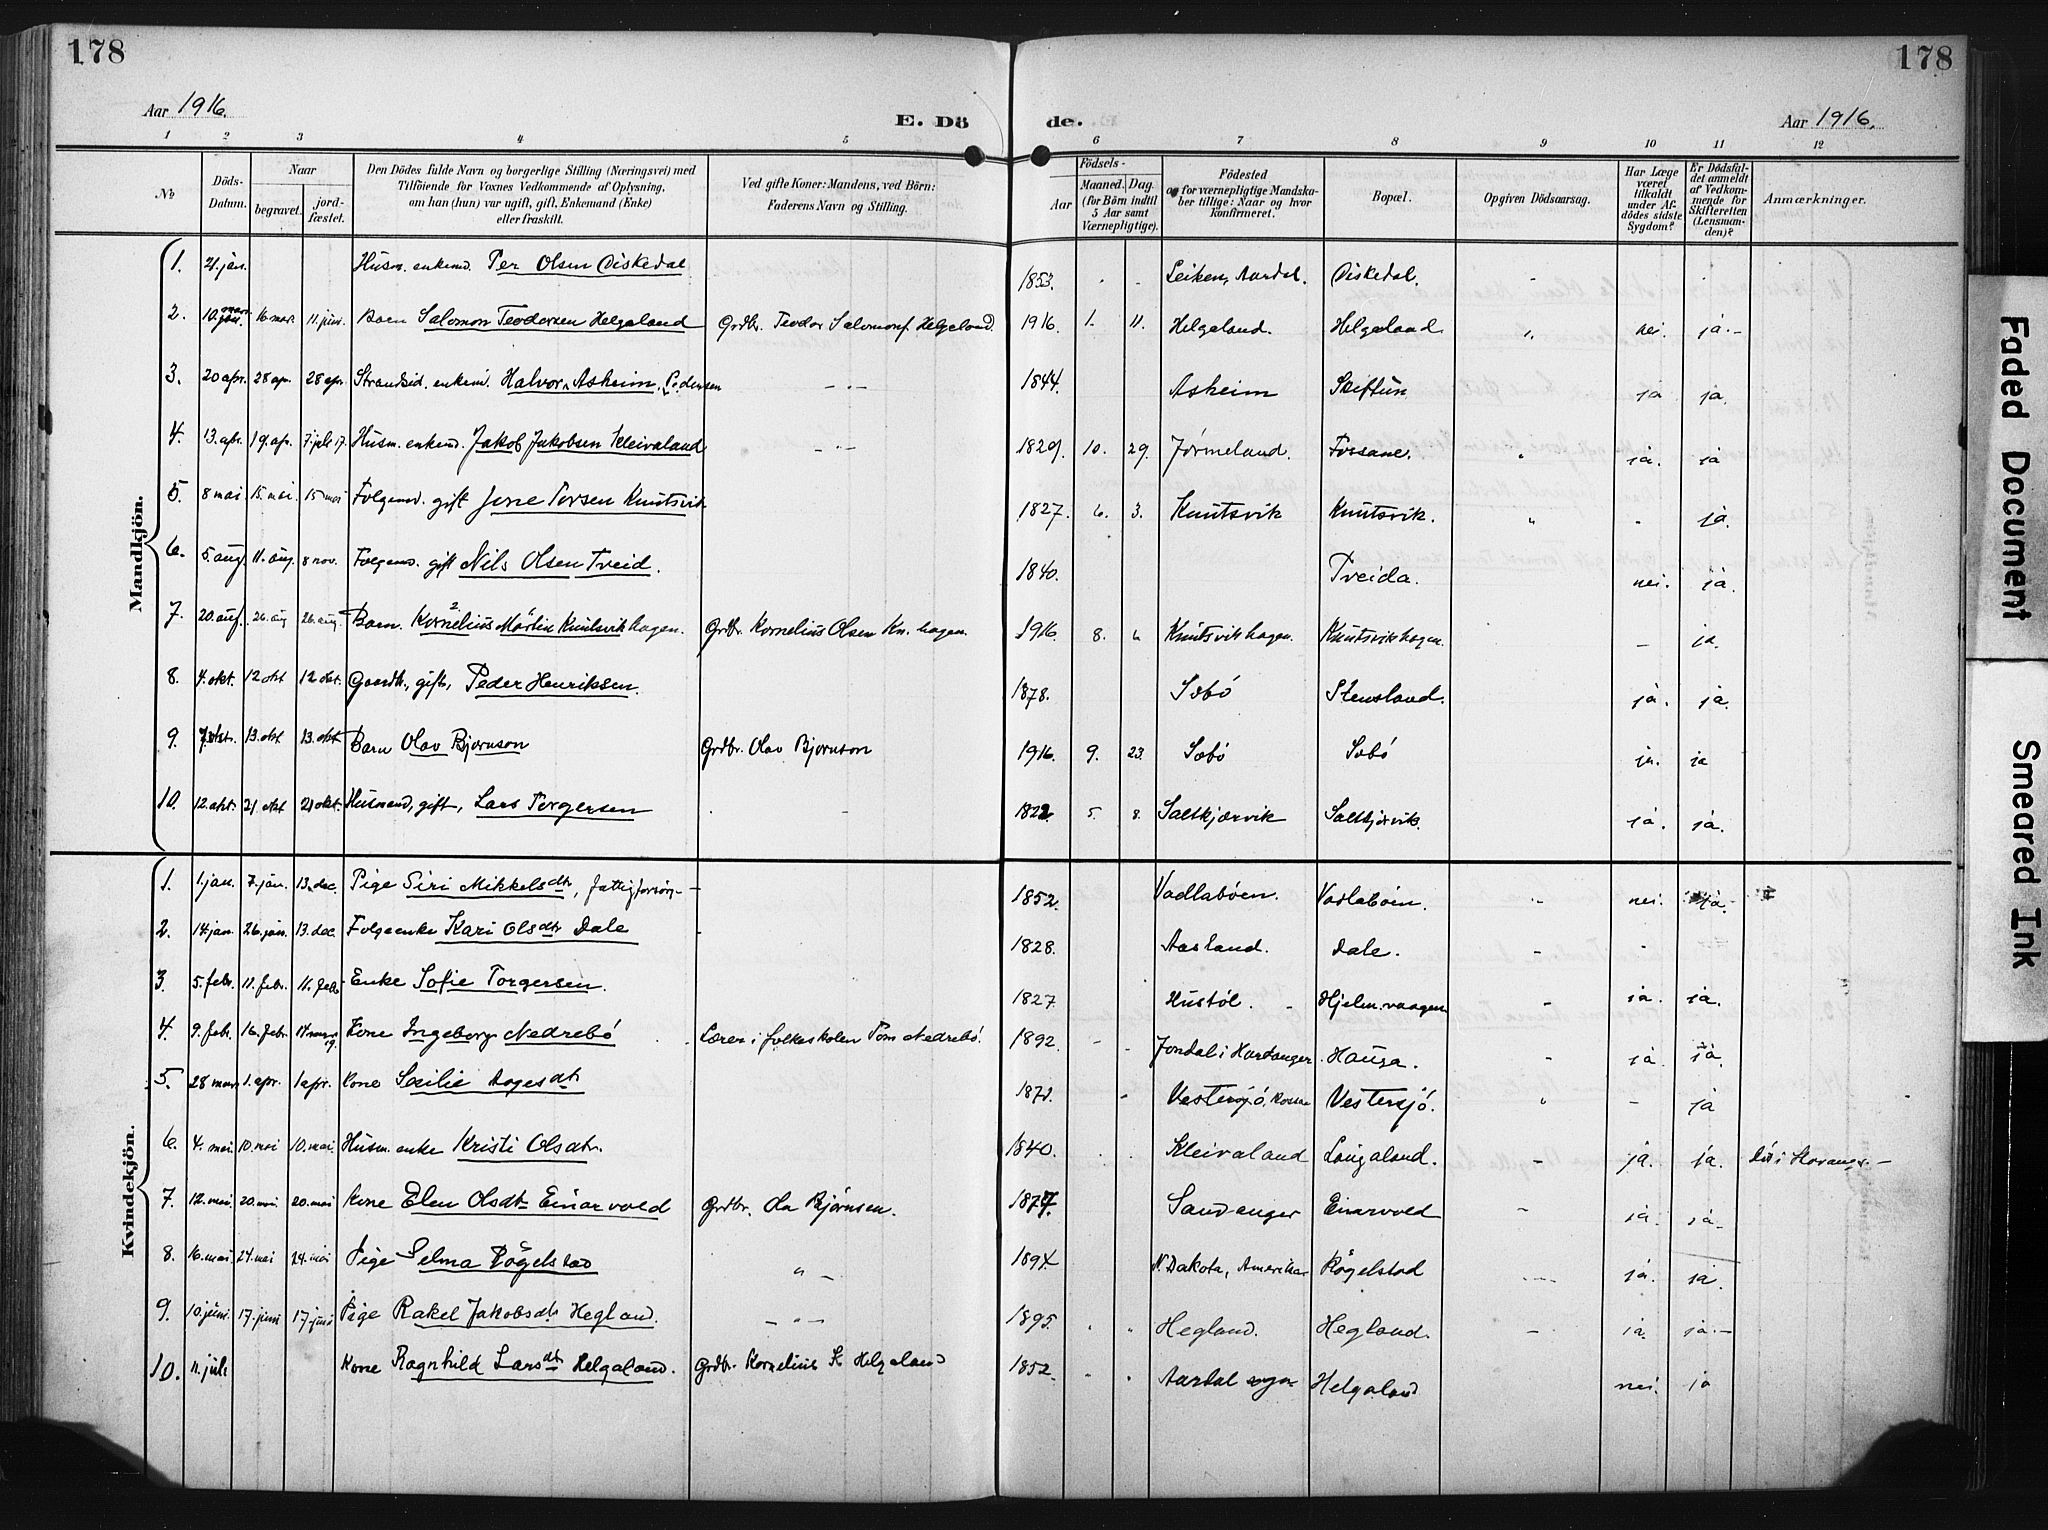 178
178
Aar 1916.
E. Dö
de.
Aar 1916.
1 2 3 4 5 6 7 8 9 10 11 12
№
Döds-Datum.
Naar
begravet.
jord-fæstet.
Den Dödes fulde Navn og borgerlige Stilling (Næringsvei) med
Tilföiende for Voxnes Vedkommende af Oplysning,
om han (hun) var ugift, gift, Enkemand (Enke)
eller fraskilt.
Ved gifte Koner: Mandens, ved Börn:
Faderens Navn og Stilling.
Födsels-
Aar
Maaned. Dag.
(for Börn indtil
5 Aar samt
Værnepligtige).
Födested
og for værnepligtige Mandska-
ber tillige: Naar og hvor
konfirmeret.
Bopæl.
Opgiven Dödsaarsag.
Har Læge
været
tilkaldt
under Af-
dödes sidste
Sygdom?
Er Dödsfal-
det anmeldt
af Vedkom-
mende for
Skifteretten
(Lensman-
den)?
Anmærkninger.
Mandkjön.
1. 21. jan. Husm. enkem. Per Olsen Diskedal 1853. Leiken, Aardal. Diskedal.
2. 10. mar. 16 mar. 11. juni. Barn Salomon Teodorsen Helgaland Grdbr. Teodor Salomons. Helgeland. 1916. 1. 11. Helgaland. Helgaland nei. ja.-
3. 20 apr. 28 ap. 28 apr. Strandsid. enkem. Halvor Asheim, Pedersen 1844. Asheim Skiftun ja ja.
4. 13. apr. 19. ap. 7. juli 17. Husm. enkem. Jakob Jakobsen Kleivaland 1829. 10. 29. Jørmeland. Fossane. ja. ja
5. 8 mai 15. mai. 15 mai Folgemd. gift Jone Torsen Knutsvik 1827. 6. 3. Knutsvik Knutsvik. ja.
6. 5. aug. 11. aug. 8 nov. Folgemd. gift Nils Olsen Tveid. 1840. Tveida. nei. ja.
7. 20. aug. 26. aug 26. aug. Barn. Kornelius Martin Knutsvikhagen. Grdbr. Kornelius Olsen Kn. hagen. 1916. 8. 6 Knutsvikhagen. Knutsvikhagen. - ja.
8. 4. okt. 12 okt 12 okt. Gaardbr., gift, Peder Henriksen. 1878. Søbó Stensland. ja. ja.
9. 7. okt. 13. okt 13. okt Barn Olav Bjørnson Grdbr. Olav Bjørnson 1916. 9. 23. Søbó Søbó ja. ja
10. 12. okt. 21 okt 21 okt. Husmand, gift, Lars Torgersen 1822 5. 8. Saltkjærvik Saltkjærvik. ja. ja.
Kvindekjön.
1. 1. jan. 7. jan. 13. dec. Pige Siri Mikkelsdtr, fattigforsørg- 1852. Vadlabóen. Vadlabóen. nei. ja.-
2. 14 jan. 26. jan. 13. dec. Folgeenke Kari Olsdtr Dale 1828. Aasland. Dale.
3. 5. febr. 11. febr. 11. febr Enke Sofie Torgersen. 1827. Hustól. Hjelm.vaagen ja. ja.
4. 9. febr. 16. febr. Kone Ingeborg Nedrebó Lærer i folkeskolen Tom Nedrebó. 1892. Jondal i Hardanger. Hauga. ja. ja.
5. 28 mar. 1. apr. 1 apr. Kone Sæilie Aagesdtr Vestersjó, Vestersjó. - ja
6. 4. mai 10. mai 10. mai. Husm. enke Kristi Olsdtr. 1840. Kleivaland Laugaland. ja. ja. Död i Stavanger.-
7. 12. mai. 20. mai. 20. mai Kone Elen Olsdtr Einarvold Grdbr. Ola Bjørnsen. 1877. Sandanger Einarvold ja. ja.
8. 16. mai. 24. mai 24. mai Pige Selma Rögelstad 1894. N. Dakota, Amerika Rögelstad ja. ja.
9. 10. juni. 17. juni 17. juni Pige Rakel Jakobsdtr Hegland. 1895. Hegland. Hegland. ja. ja.-
10. 11. juli Kone Ragnhild Larsdtr Helgaland. Grdbr. Kornelius K Helgaland 1852. Aardal sogn Helgaland nei. ja
Faded Document
Smeared Ink